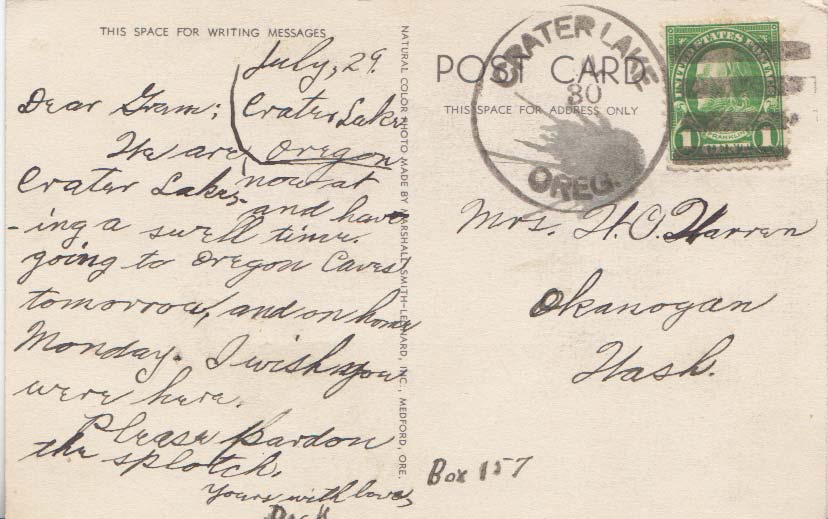 THIS SPACE FOR WRITING MESSAGES
July, 29.
Crater Lake
Oregon
Dear Gram:
We are now at
Crater Lake,
and hav-
-ing a swell time.
going to Oregon Caves
tomorrow, and on home
Monday. I wish you
were here.
Please pardon
the splotch.
Yours with love,
NATURAL COLOR PHOTO MADE BY MARSHALL SMITH-LEONARD, INC., MEDFORD, ORE.
POST CARD
THIS SPACE FOR ADDRESS ONLY
CRATER LAKE
30
OREG.
UNITED STATES POSTAGE
FRANKLIN
1 1
Mrs. H. O. Warren
Okanogan
Wash.
Box 157